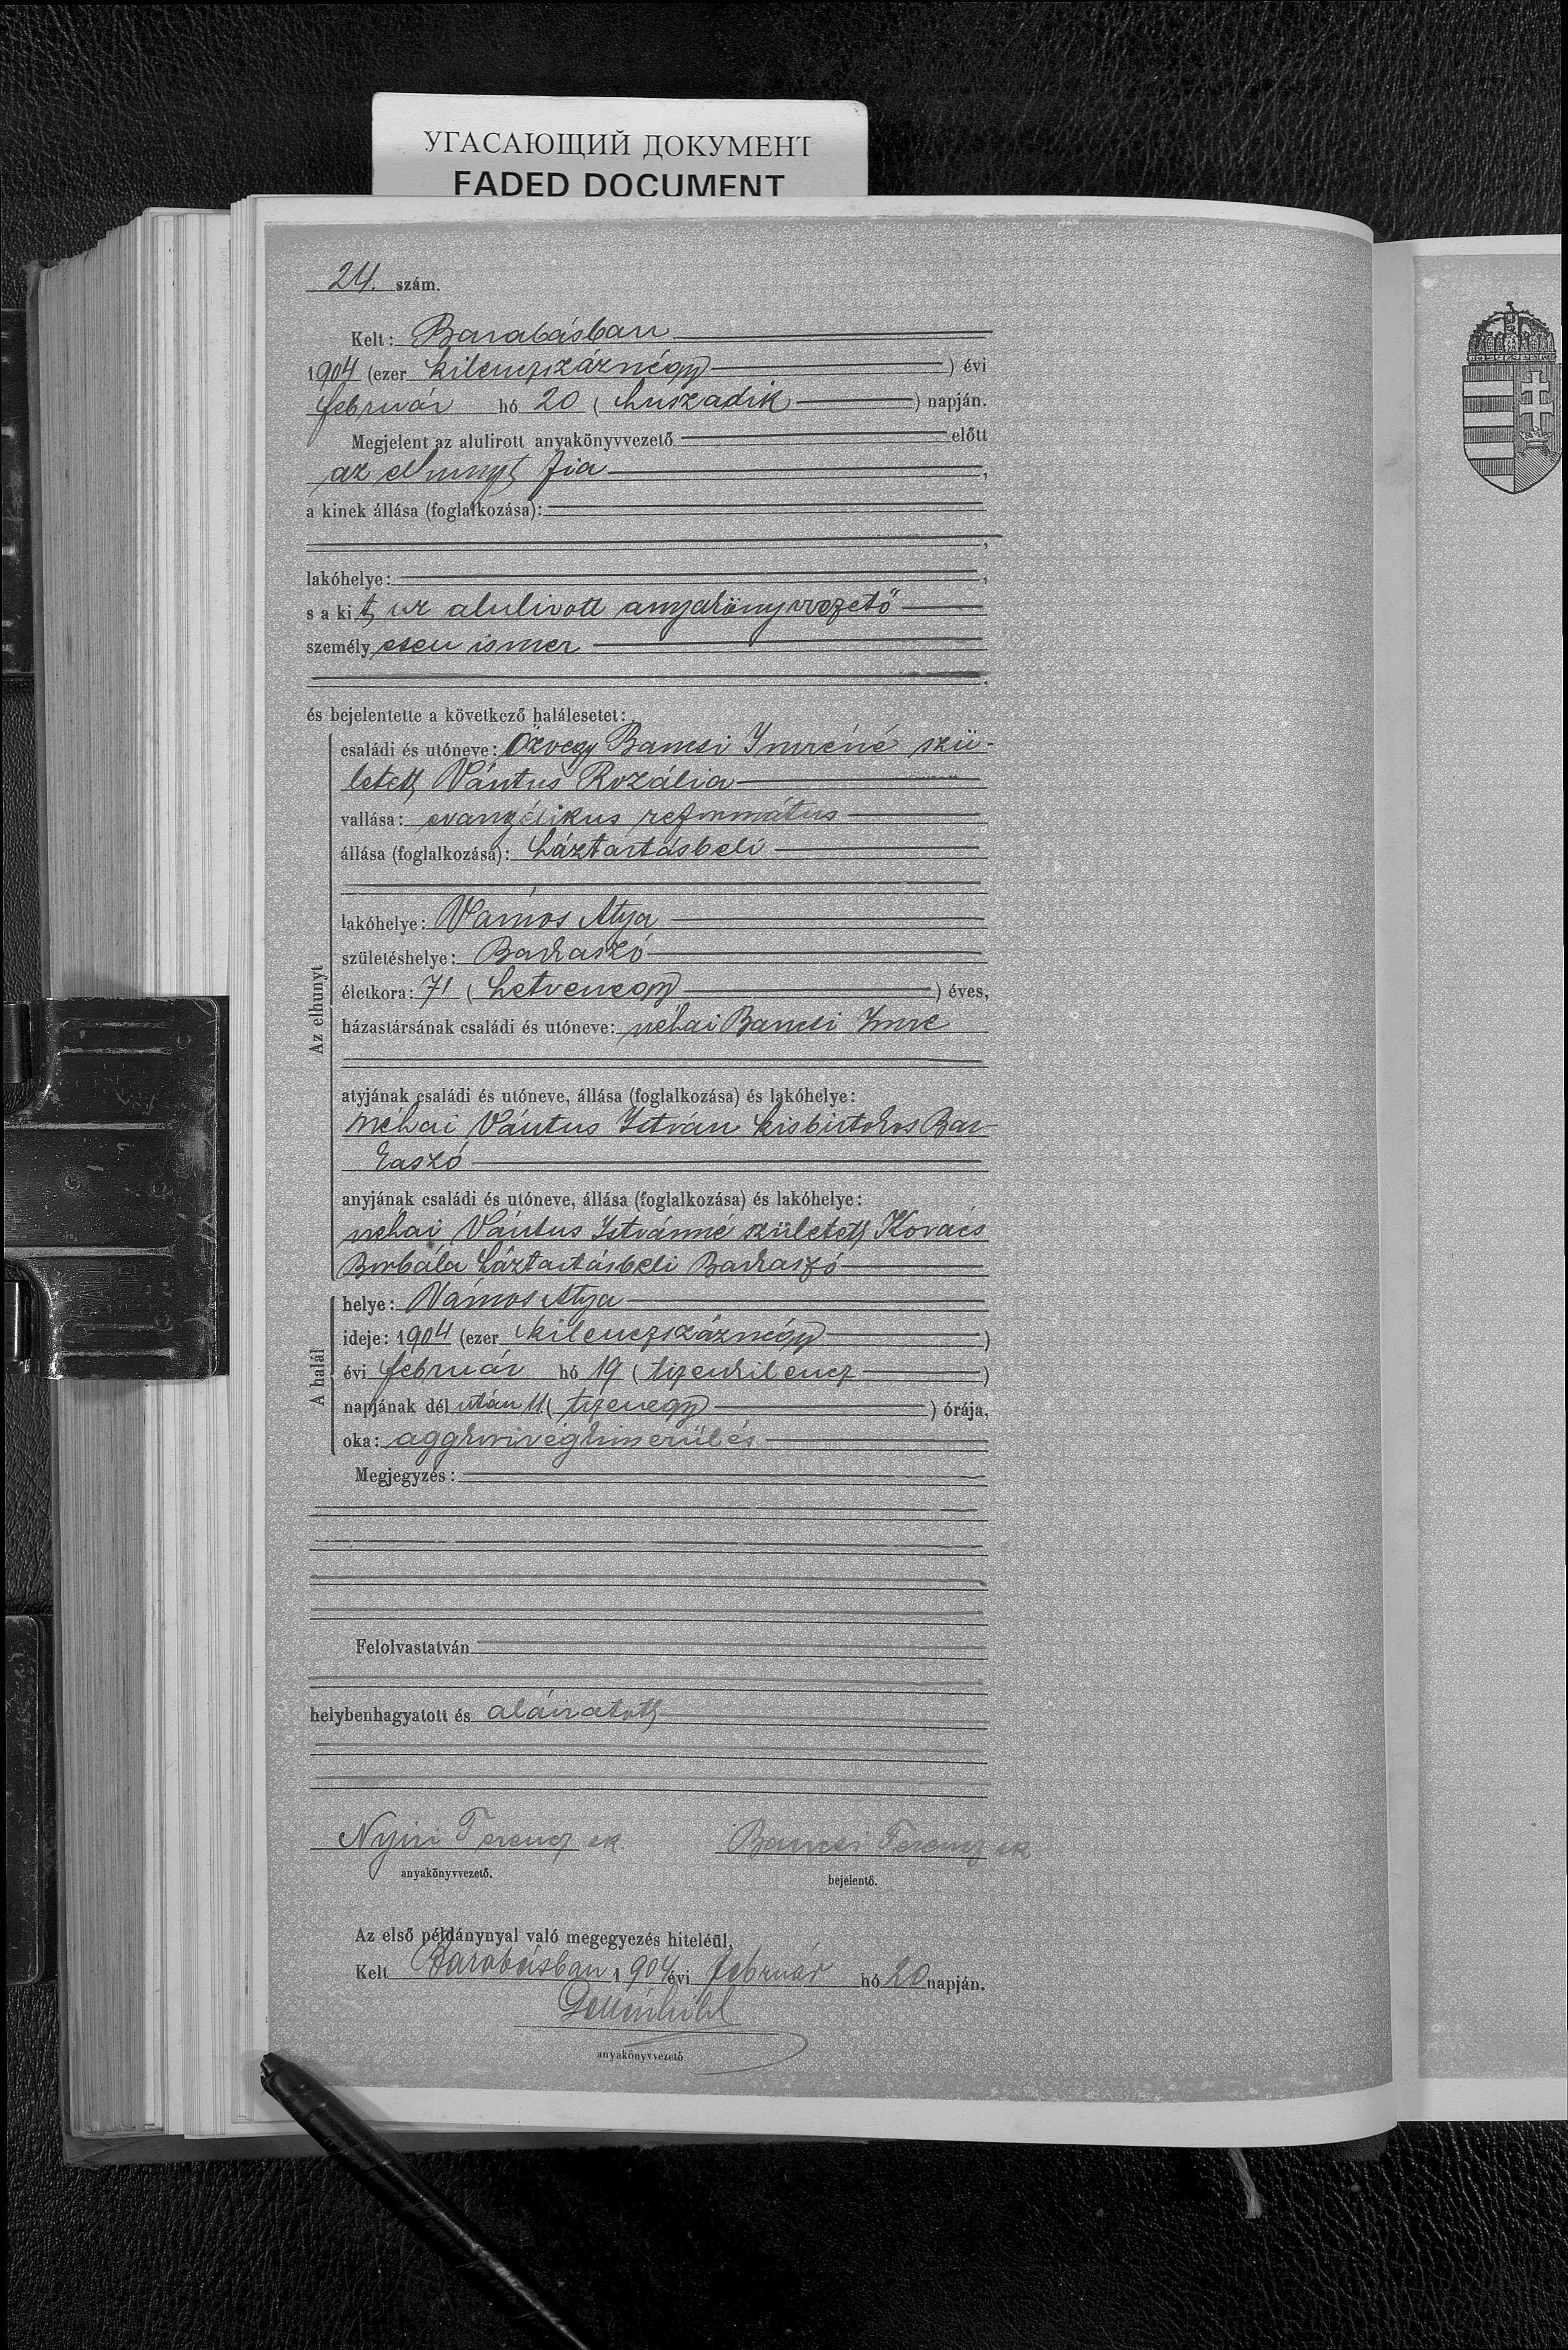 УГАСАЮЩИЙ ДОКУМЕНТ
FADED DOCUMENT
24. szám.
Kelt: Barabásban
1904 (ezer kilenczszáznégy) évi
február hó 20 (huszadik) napján.
Megjelent az alulirott anyakönyvvezető előtt
az elhunyt fia,
a kinek állása (foglalkozása):
,
lakóhelye: ,
s a kit az alulirott anyakönyvvezető
személyesen ismer
.
és bejelentette a következő halálesetet:
Az elhunyt
családi és utóneve: Özvegy Bancsi Imréné szü-
letett Vántus Rozália
vallása: evangélikus református
állása (foglalkozása): háztartásbeli
lakóhelye: Vámos Atya
születéshelye: Badraszó
életkora: 71 (hetvenegy) éves,
házastársának családi és utóneve: néhai Bancsi Imre
atyjának családi és utóneve, állása (foglalkozása) és lakóhelye:
néhai Vántus István kisbirtokos Bad-
raszó
anyjának családi és utóneve, állása (foglalkozása) és lakóhelye:
néhai Vántus Istvánné született Kovács
Borbála háztartásbeli Badraszó
A halál
helye: Vámos Atya
ideje: 1904 (ezer kilenczszáznégy)
évi február hó 19 (tizenkilencz)
napjának dél után 11 (tizenegy) órája,
oka: aggkori végkimerülés
Megjegyzés:
Felolvastatván
helybenhagyatott és aláiratott
Nyiri Ferencz sk
Bancsi Ferencz sk
anyakönyvvezető.
bejelentő.
Az első példánynyal való megegyezés hiteléül,
Kelt Barabásban 1904 évi február hó 20 napján.
anyakönyvvezető